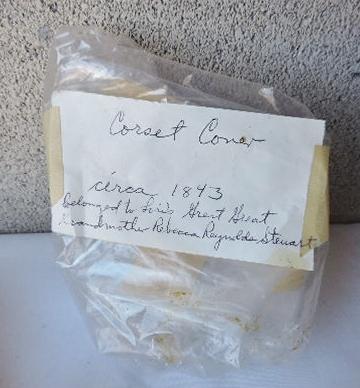 Corset Cover
circa 1843
belonged to Lori's Great Great
Grandmother Rebecca Reynolds Stewart